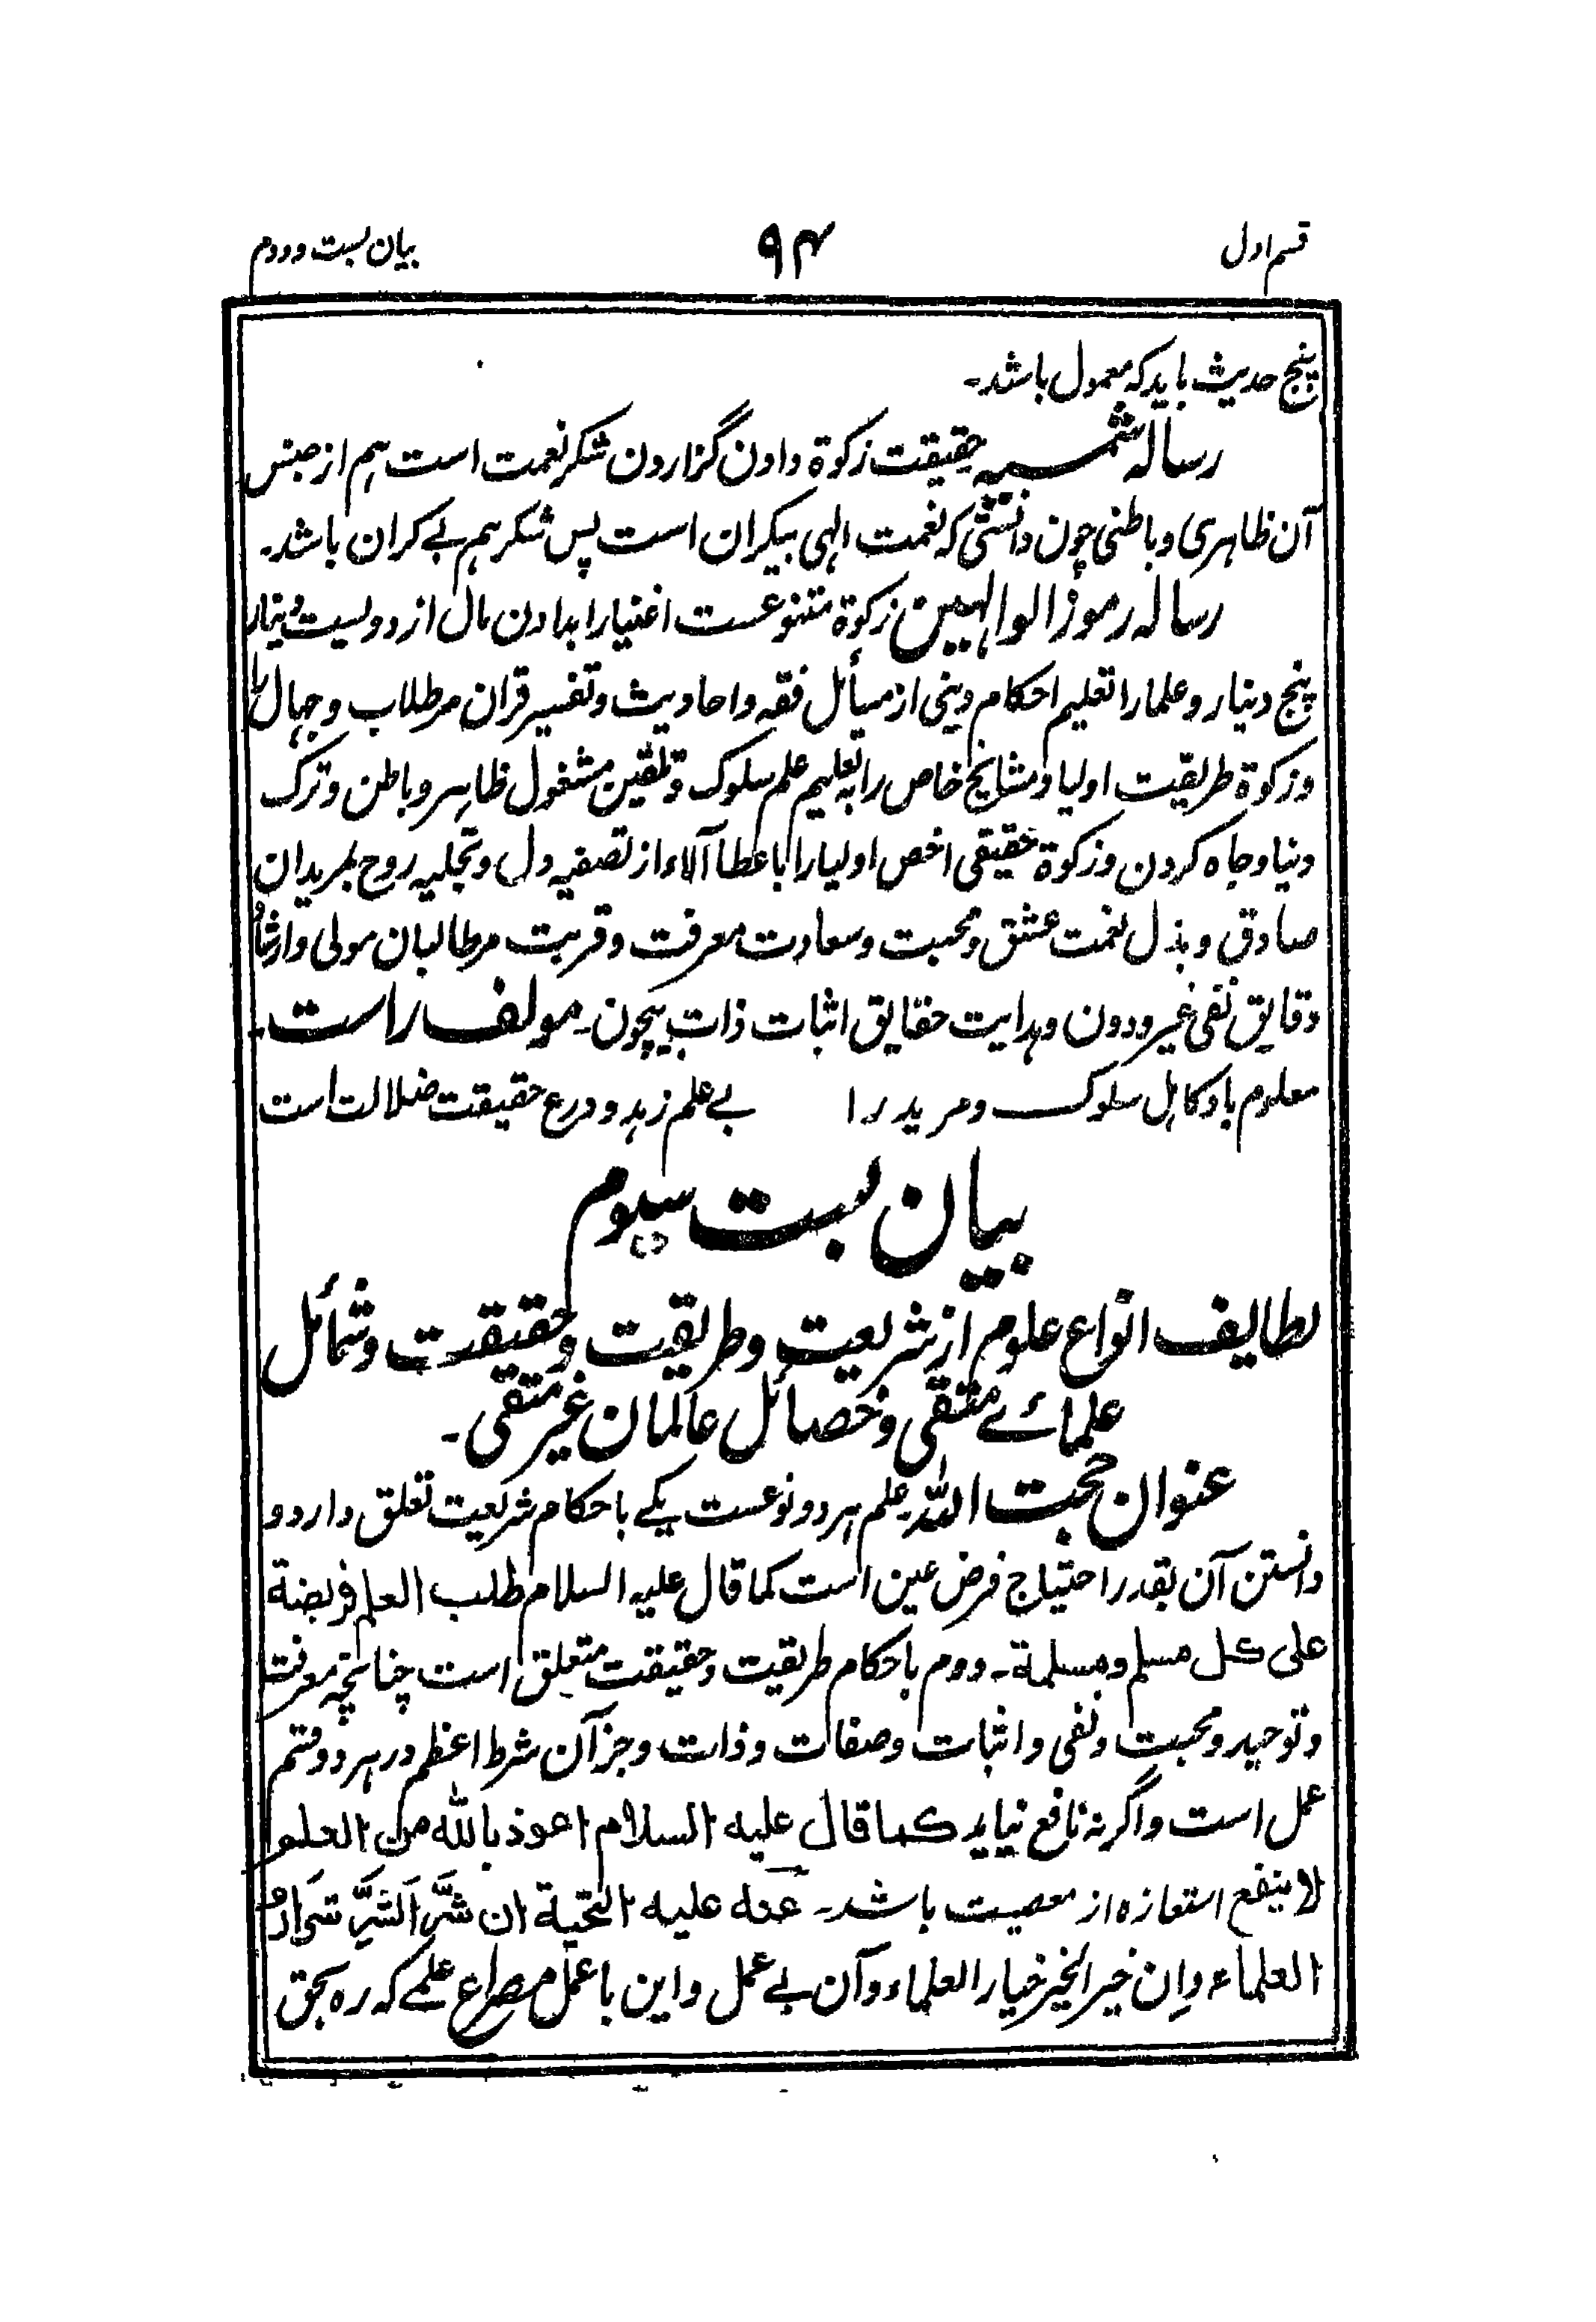 قسم اول ۹۴ بیان بست و دوم
پنج حدیث باید که معمول باشد۔
رسالہ شمسیہ حقیقت زکوة دادن گزاردن شکر نعمت است ہم از جنس
آن ظاہری و باطنی چون دانستی که نعمت الہی بیکران است پس شکر ہم بے کران باشد۔
رسالہ رموز الوالہین زکوة متنوعست اغنیا را بدادن مال از دو لیست دینار
پنج دینار و علما را تعلیم احکام دینی از مسأئل فقہ و احادیث و تفسیر قران مرطلاب و جہال را
و زکوة طریقت اولیا و مشایخ خاص را بہ تعلیم علم سلوک و تلقین مشغول ظاہر و باطن و ترک
دنیا و جاہ کردن و زکوة حقیقی اخص اولیا را باعطا آلاء از تصفیہ دل و تجلیہ روح بمریدان
صادق و بذل نعمت عشق و محبت و سعادت معرفت و قربت مرطالبان مولی و ارشاد
دقایق نفی غیر و دون و ہدایت حقایق اثبات ذات بیچون۔ مولف راست۔
معلوم باد کاہل سلوک و مرید را بے علم زہد و ورع حقیقت ضلالت است
بیان بست سیوم
لطایف انواع علوم از شریعت و طریقت و حقیقت و شمائل
علمائے متقی و خصائل عالمان غیر متقی۔
عنوان حجت اللہ علم ہر دو نوعست یکے باحکام شریعت تعلق دارد و
دانستن آن بقدر احتیاج فرض عین است کما قال علیہ السلام طلب العلم فریضة
علی کل مسلم و مسلمة۔ دوم باحکام طریقت و حقیقت متعلق است چنانچہ معرفت
و توحید و محبت و نفی و اثبات و صفات و ذات و جز آن شرط اعظم در ہر دو قسم
عمل است و اگر نہ نافع نیاید کما قال علیه السلام اعوذ بالله من العلم
لا ینفع استعاذہ از معصیت باشد۔ عنه علیه التحیة ان شَرَّ الشَّرِّ شَرارُ
العلماء وان خیر الخیر خیار العلماء و آن بے عمل و این با عمل مصراع علمے کہ رہ بحق